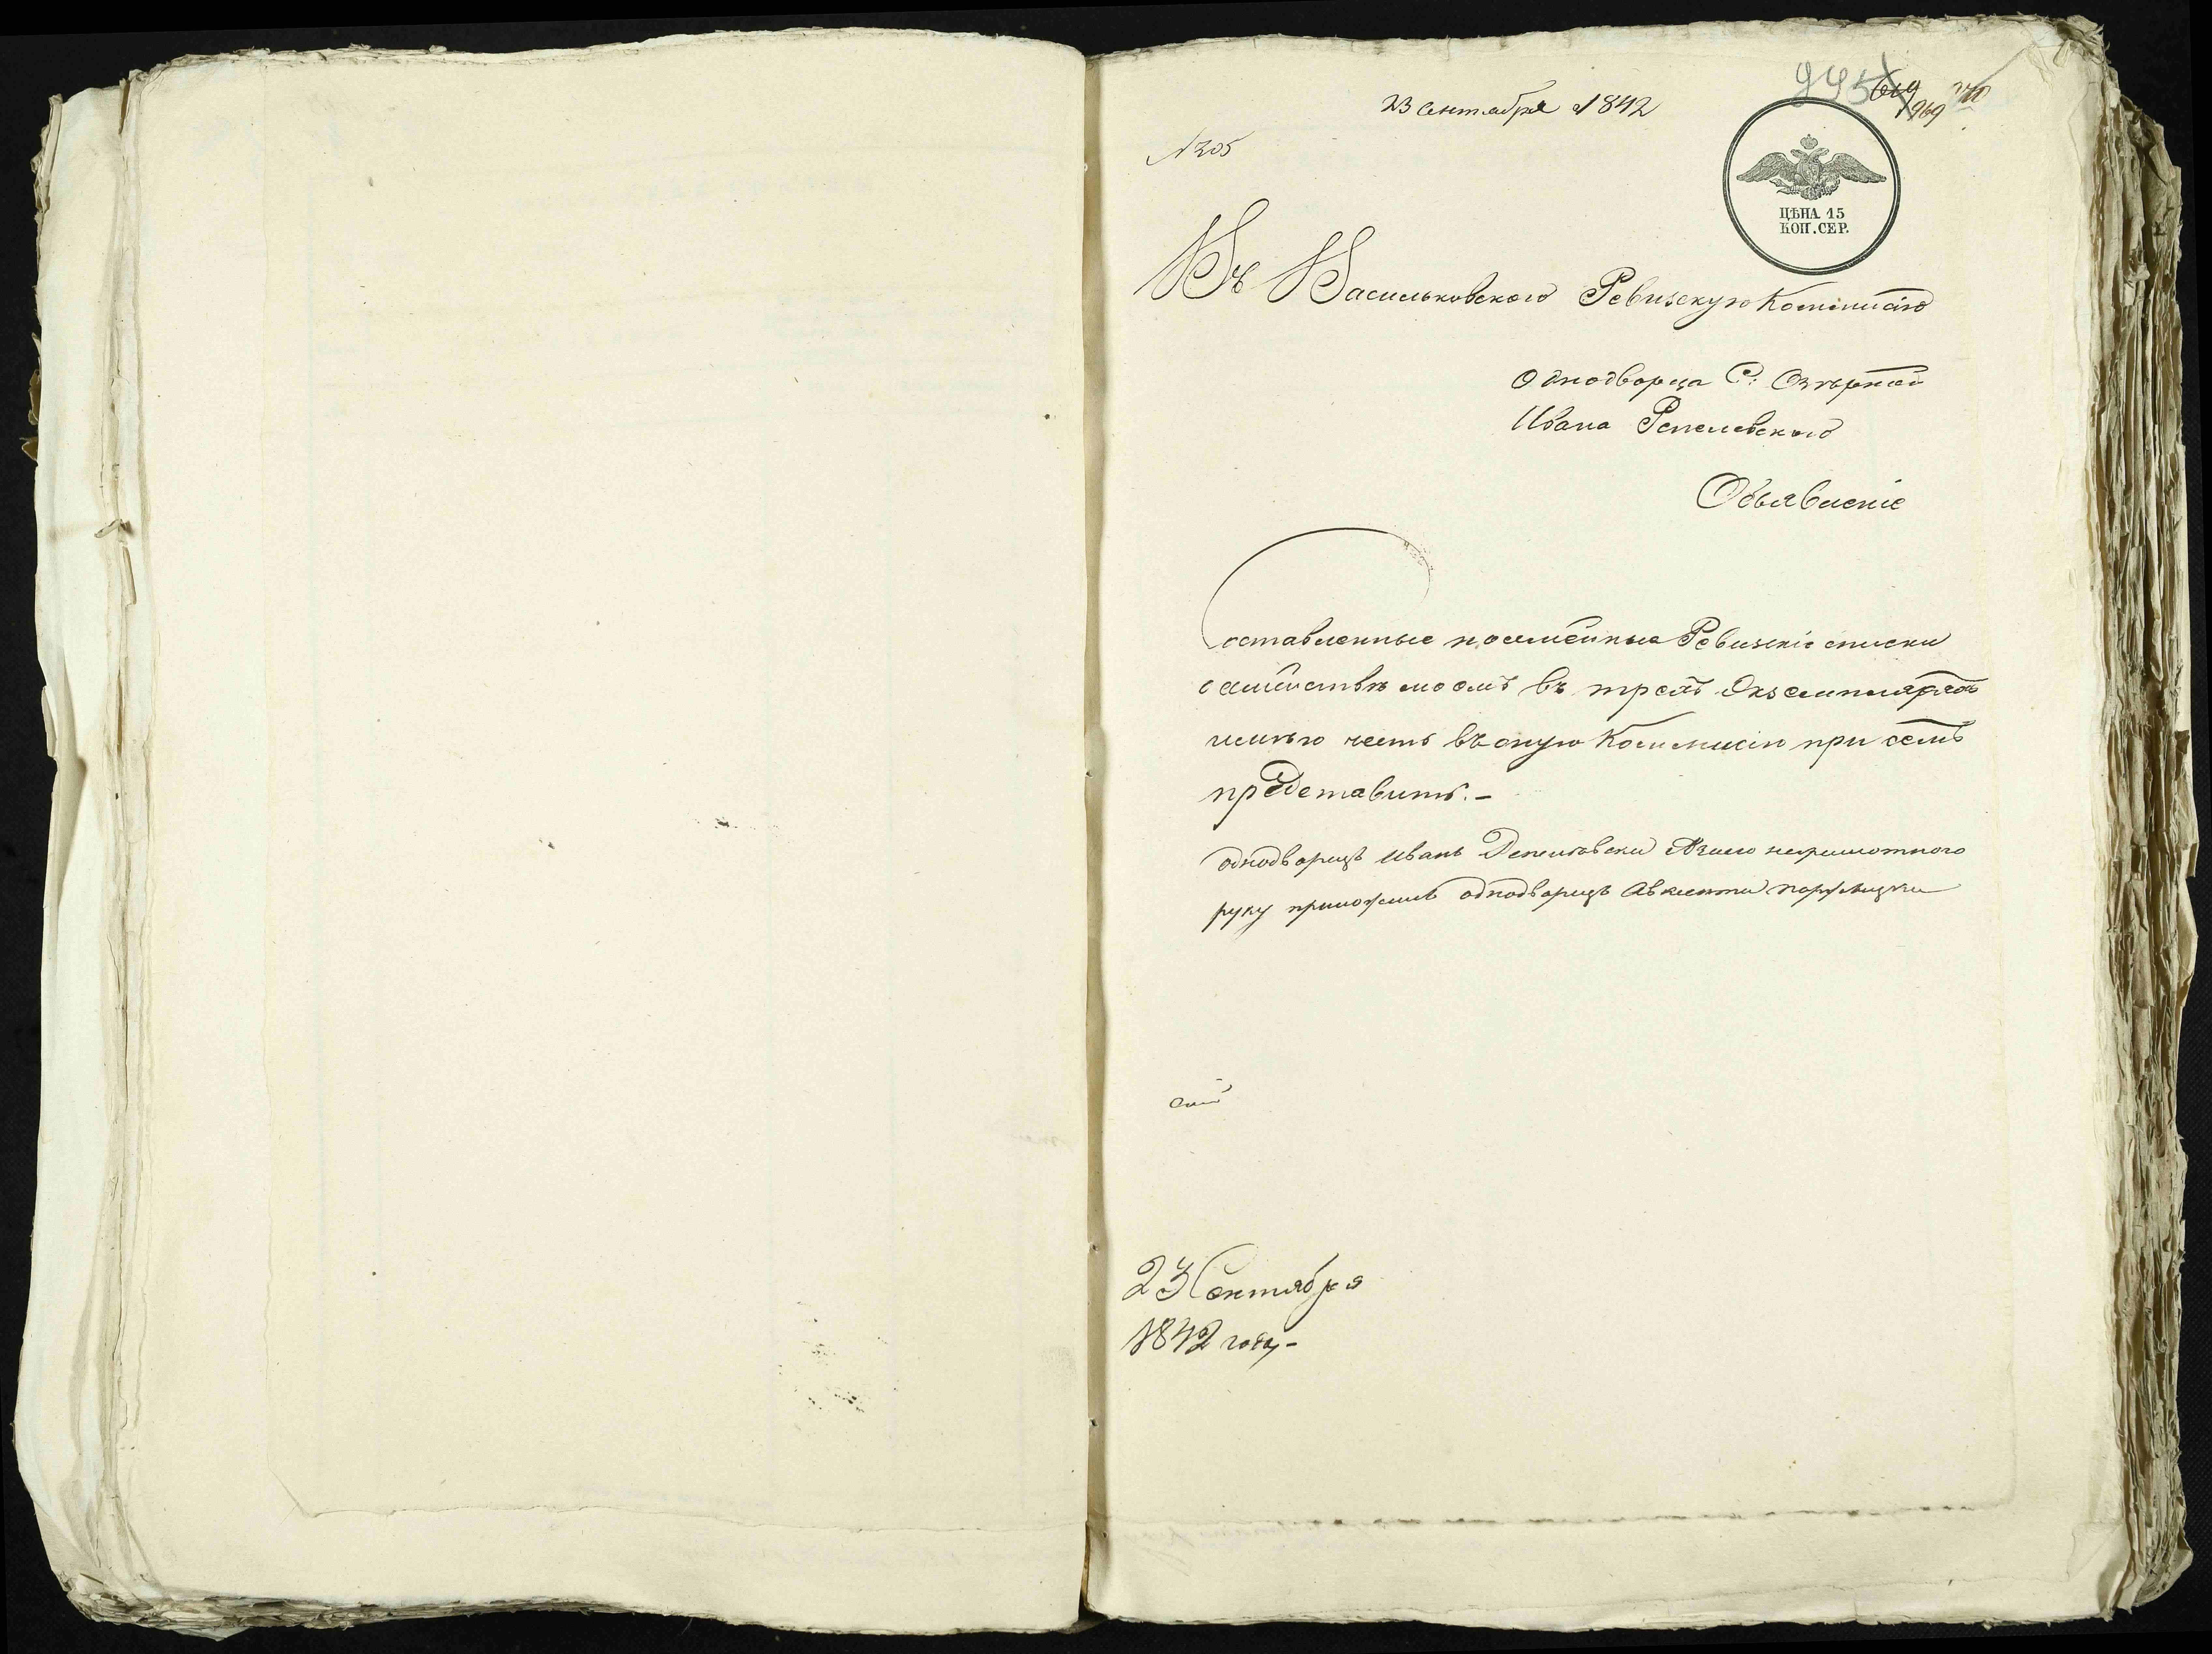 995
969
23 Сентября 1842
N 205
ЦѢНА 15
КОП. СЕР.
Въ Васильковского Ревизскую Коммисію
Однодворца С: Озѣрной
Ивана Репелевского
Объявленіе
Составленные посемейные Ревизскіе списки
о семействѣ моемъ въ трехъ Экземплярахъ
имѣю честь въ оную Коммисію при семъ
представить.-
однодворецъ Иванъ неграмотного
руку приложилъ однодворецъ Авксенти
23 Сентября
1842 года,-